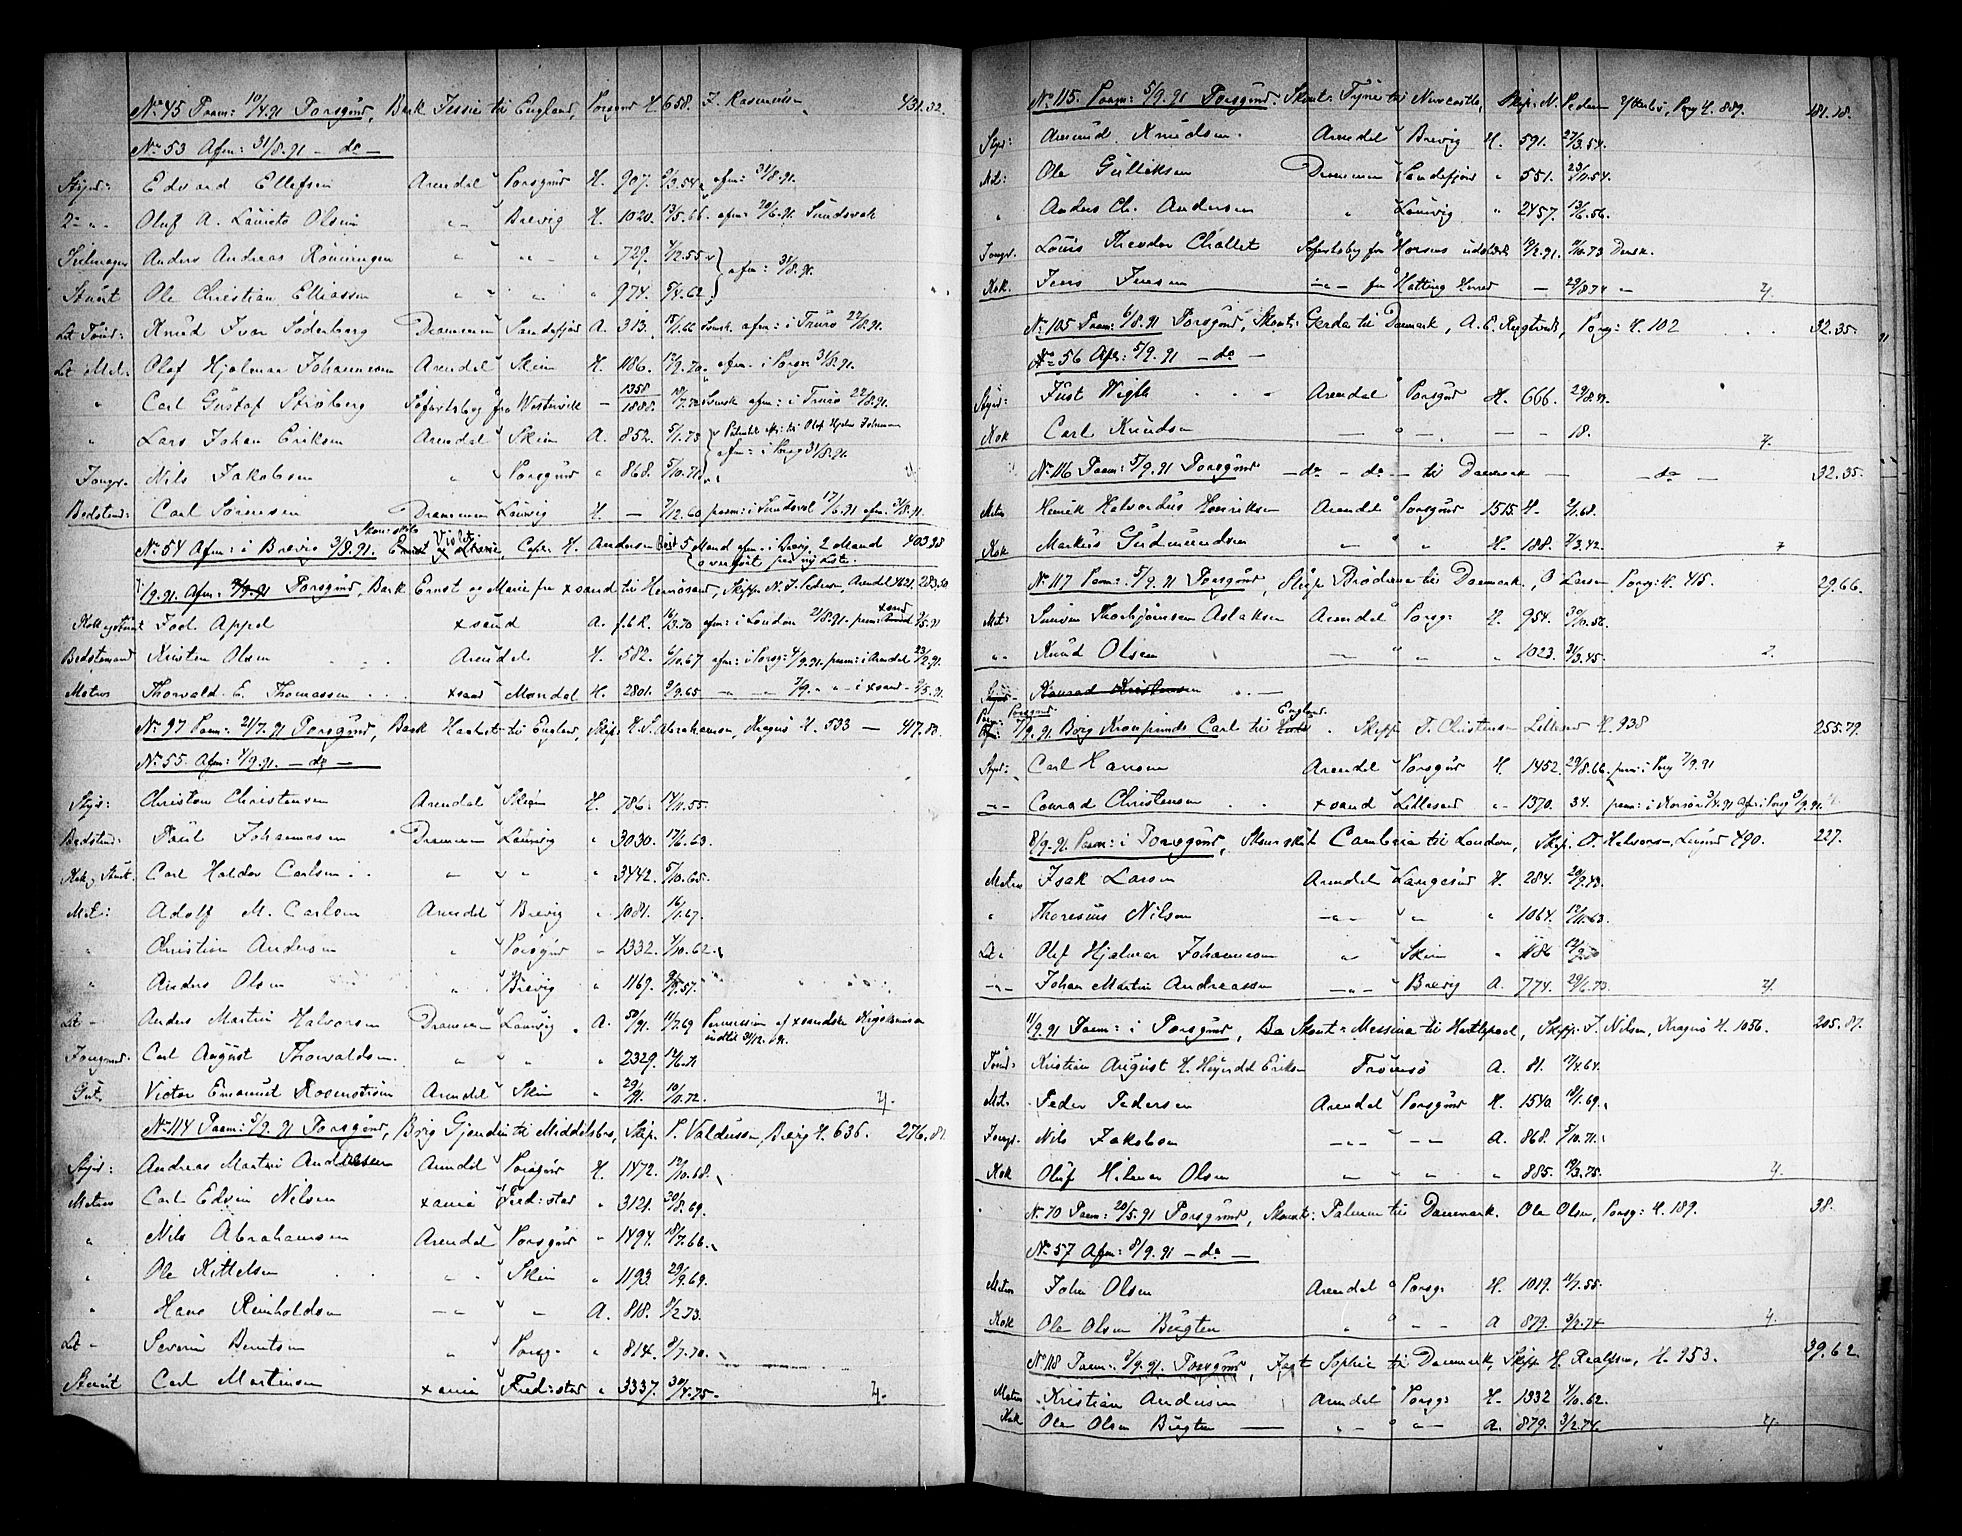 No 45 Paam: 10/4.91 Porsgrund, Bark Jessie til England, Porsgrund H. 658. J. Rasmussen 431.32.
No 53 Afm: 31/8.91 - do -
Styrm: Edvard Ellefsen Arendal Porsgrund H. 907. afm: 31/8.91.
2 - " - Oluf A. Lauritz Olsen " Brevig H. 1020. 13/5.65 afm: Sundsvall
Seilmager Anders Andreas Rönningen " " " 729. 4/12.55 afm: 31/8.91.
Stuert Ole Christian Elliassen " " " 974. 5/4.62.
Knud Ivar Söderberg Drammen Sandefjord A. 313. Svensk afm: i Truro 22/8.91.
Let Mat: Olaf Hjalmar Johannesen Arendal Skien H. 1186. 12/9.70 afm. i Porsgr 31/8.91.
" Carl Gustaf Ströberg Söfartsbog fra Westervik - 1358/1888. Svensk afm: i Truro 22/8.91.
" Lars Johan Eriksen Arendal Skien A. 852. 5/1.73 afm: i Porsg 31/8.91.
Jongr. Nils Jakobsen " Porsgrund " 868. 5/10.71
Bedstemd: Carl Sörensen Drammen Laurvig H. - 7/12.60 paam: i Sundsvall 17/6.91 afm. 31/8.91
No 54 Afm: i Brevig 3/8.91. Skonnert Violet Capt: H. Andersen 5 Mand afm. i Brevig. 2 Mand overført paa ny Liste. 403.28
1/9.91. Afm: Porsgrund, Bark Ernst og Marie fra xsand til Hernösand, Skipp N. J. Pedersen, Arendal 1621. 283.50
Kok og Stuert Fod. Appel xsand A. f.b.K. 16/3.70 afm: i London 21/8.91. paam:
Bedstemand Kristen Olsen Arendal H. 582. 6/10.67 afm: i Porsg: 4/9.91, paam: i Arendal 23/2.91.
Matros Thorvald E. Thomassen xsand Mandal H. 2801. 9/9.65 - " - 7/9. " - i xsand - 2/5.91.
No 97 Paam: 21/7.91 Porsgrund, Bark Harbitz til England, Skip: H. S. Abrahamsen, Kragerö H. 533 - 417.80.
No 55 Afm: 1/9.91. - do -
Styr: Christen Christensen Arendal Skien H. 786. 14/11.55.
Bedstemd: Paul Johannesen Drammen Laurvig " 3030. 17/6.63.
Kok og Stuert. Carl Halder Carlsen " " " 3442. 5/10.65.
Mat: Adolf M. Carlsen Arendal Brevig " 1081. 16/1.67.
" Christian Andersen " Porsgrund " 1332. 4/10.62.
" Anders Olsen " Brevig " 1169.
Let - Anders Martin Halvorsen Drammen Laurvig " A. 50/91. 11/2.69 Permission af xsandske Krigskomm indtil 31/12.
Jongmd. Carl August Thorvaldsen " " " 2329. 14/6.71
Gut. Victor Emanuel Rosenstrøm Arendal Skien " 29/91. 10/10.72. 4.
No 114 Paam: 5/9.91 Porsgrund, Brig Gjendin til Middelsbro, Skip. P. Valdersen, Brevig H. 636. 276.81
Styr: Andreas Martin Andersen Arendal Porsgrund H. 1472. 12/10.68.
Matros Carl Edvin Nilsen xania Fred:stad " 3121. 30/8.69.
" Nils Abrahamsen Arendal Porsgrund " 1494. 18/7.66.
" Ole Kittelsen " " Skien " 1193. 29/9.69.
" Hans Reinholdsen - " - " A. 818. 8/2.73.
Let - Severin Berntsen " Porsgr " 814. 8/7.70.
Stuert Carl Martinsen xania Fred:stad " 3337. 30/4.75. 4.
No 115. Paam: 5/9.91 Porsgrund: Skont: Tyne til Newcastle, Skip: N. Pedersen Porsg H. 889. 181.18.
Styr: Amund Knudsen Arendal Brevig H. 591. 27/3.54.
Mat: Ole Gulliksen Drammen Sandefjord " 551. 23/11.54.
" Anders Ch. Andersen " Laurvig " 2457. 13/6.56.
Jongr. Louis Theodor Challet Söfartsbog fra Horsens udstedt 19/2.91. Dansk.
Kok. Jens Jensen - " - fra Hatting Herred - 29/8.71 - 4.
No 105 Paam: 6/8.91 Porsgrund, Skont: Gerda til Danmark, A. E. Rugtvedt, Porsg: H. 102 32.35.
No 56 Afm: 5/9.91 - do -
Styr: Just Wigh Arendal Porsgrund H. 666.
Kok Carl Knudsen - " - - - 18. 4.
No 116 Paam: 5/9.91 Porsgrund - do - do - til Danmark - do - 32.35.
Matros Henrik Halvordus Henriksen Arendal Porsgrund 1515 H. 2/1.68.
Kok Markus Gudmundsen " " H. 188. 7/3.42.
No 117 Paam: 5/9.91 Porsgrund, Slup Brödrene til Danmark, O. Larsen Porsg: H. 415. 29.66.
Mat: Simon Thorbjörnsen Aslaksen Arendal Porsg: H. 954. 30/10.56.
" Knud Olsen " " " 1023. 31/3.45. 2.
Konrad Kristensen
Porsgrund 7/9.91 Brig Kronprinds Carl til England. Skipp T. Christensen Lillesand H. 938 255.79.
Styr: Carl Hansen Arendal Porsgrund H. 1452. 29/8.66. paam: i Porsg 7/9.91
- " - Conrad Christensen xsand Lillesand " 1370. 34. paam: i Korsör 3/4.91 Afm: i Porsg 3/9.91.
8/9.91. Paam: i Porsgrund, Skonnert Cambria til London, Skip. O. Halvorsen, Langesund 490. 227.
Matros Isak Larsen Arendal Langesund H. 284. 20/9.43.
" Thoresius Nilsen - " - " " 1064. 12/11.63.
Let " Olaf Hjalmar Johannesen " Skien " 1186 12/9.70
- " - Johan Martin Andreassen - " - Brevig A. 774. 29/6.73. 4.
11/9.91 Paam: i Porsgrund, Skont: Messina til Hartlepool, Skipp: J. Nilsen, Kragerö H. 1056. 205.87.
Kristian August H. Heyerdal Eriksen Tromsö A. 81. 7/4.64.
Mat. Peder Pedersen Arendal Porsgrund H. 1540 18/1.69.
Jongr. Nils Jakobsen - " - - " - A. 868. 5/10.71.
Kok Oluf Hilmar Olsen " " " 885. 19/3.75. 4.
No 70 Paam: 20/5.91 Porsgrund, Skont: Palmen til Danmark. Ole Olsen, Porsg: H. 189. 38.
No 57 Afm: 8/9.91 - do -
Matros John Olsen Arendal Porsg: H. 1019. 11/1.55.
Kok Ole Olsen Bugten " " - A 879. 3/2.74 4.
No 118 Paam: 8/9.91. Porsgrund, Jagt Sophie til Danmark, Skipp H. Realfsen, H. 953. 39.62.
Matros Kristian Andersen Arendal Porsg: H. 1332 4/10.62.
Kok Ole Olsen Bugten - " - " - A. 879. 3/2.74. 4.